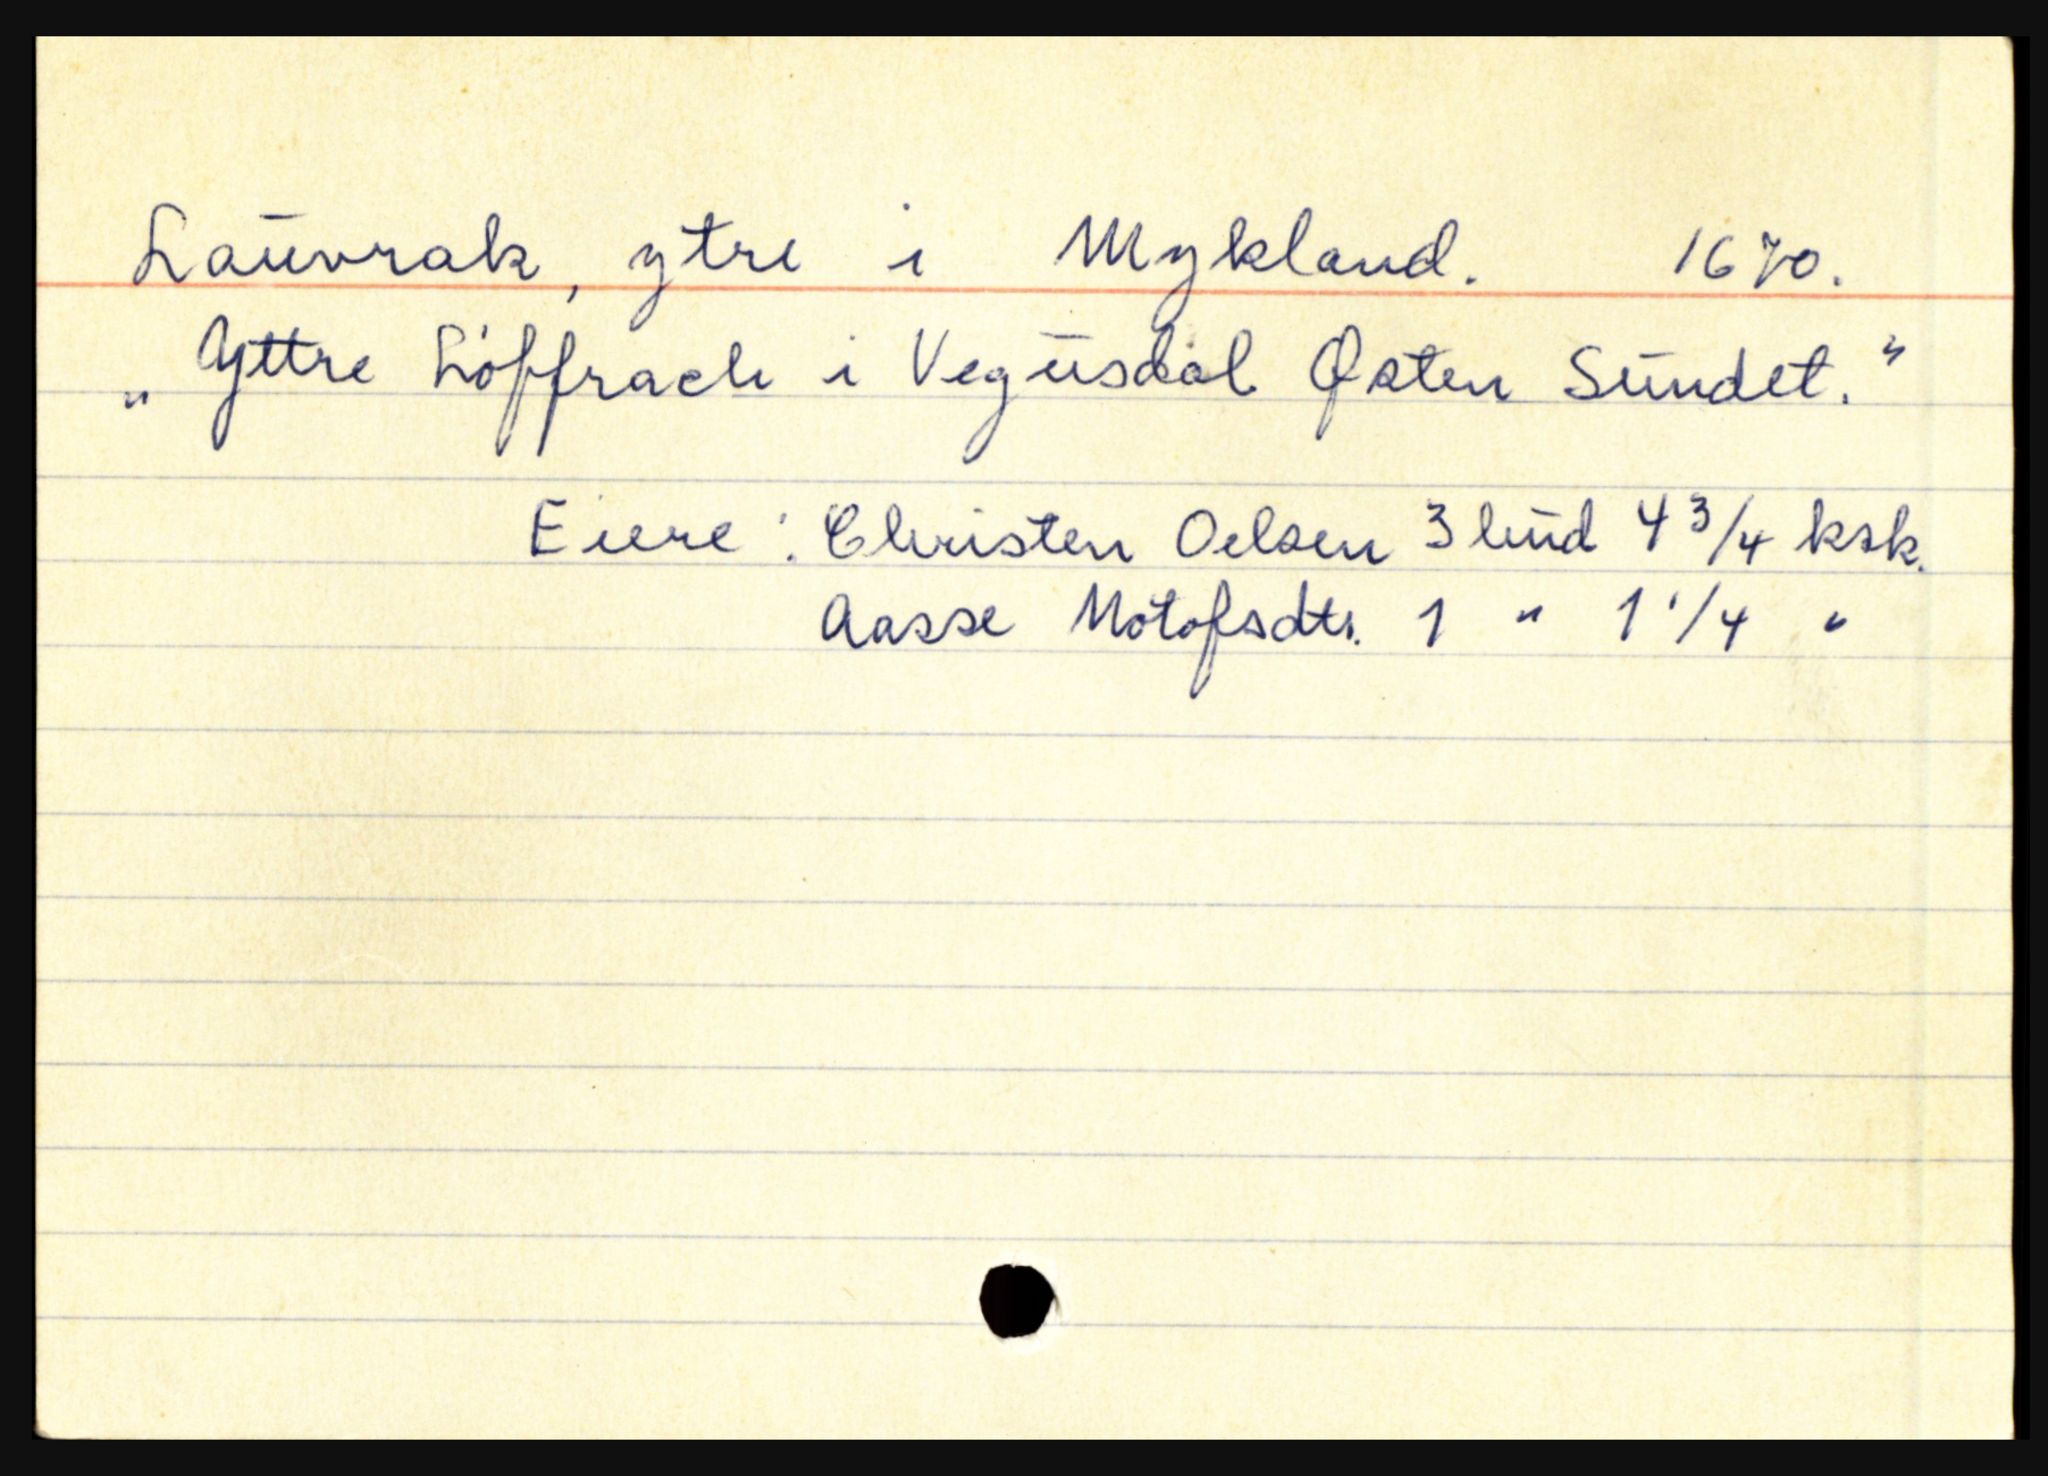 Lauvrak, ytre i Mykland. 1670.
„Yttre Löffrach i Vegusdal Østen Sundet.”
Eiere: Christen Oelsen 3 hud 4 3/4 ksk.
Aasse Motofsdtr. 1 " 1 1/4 "